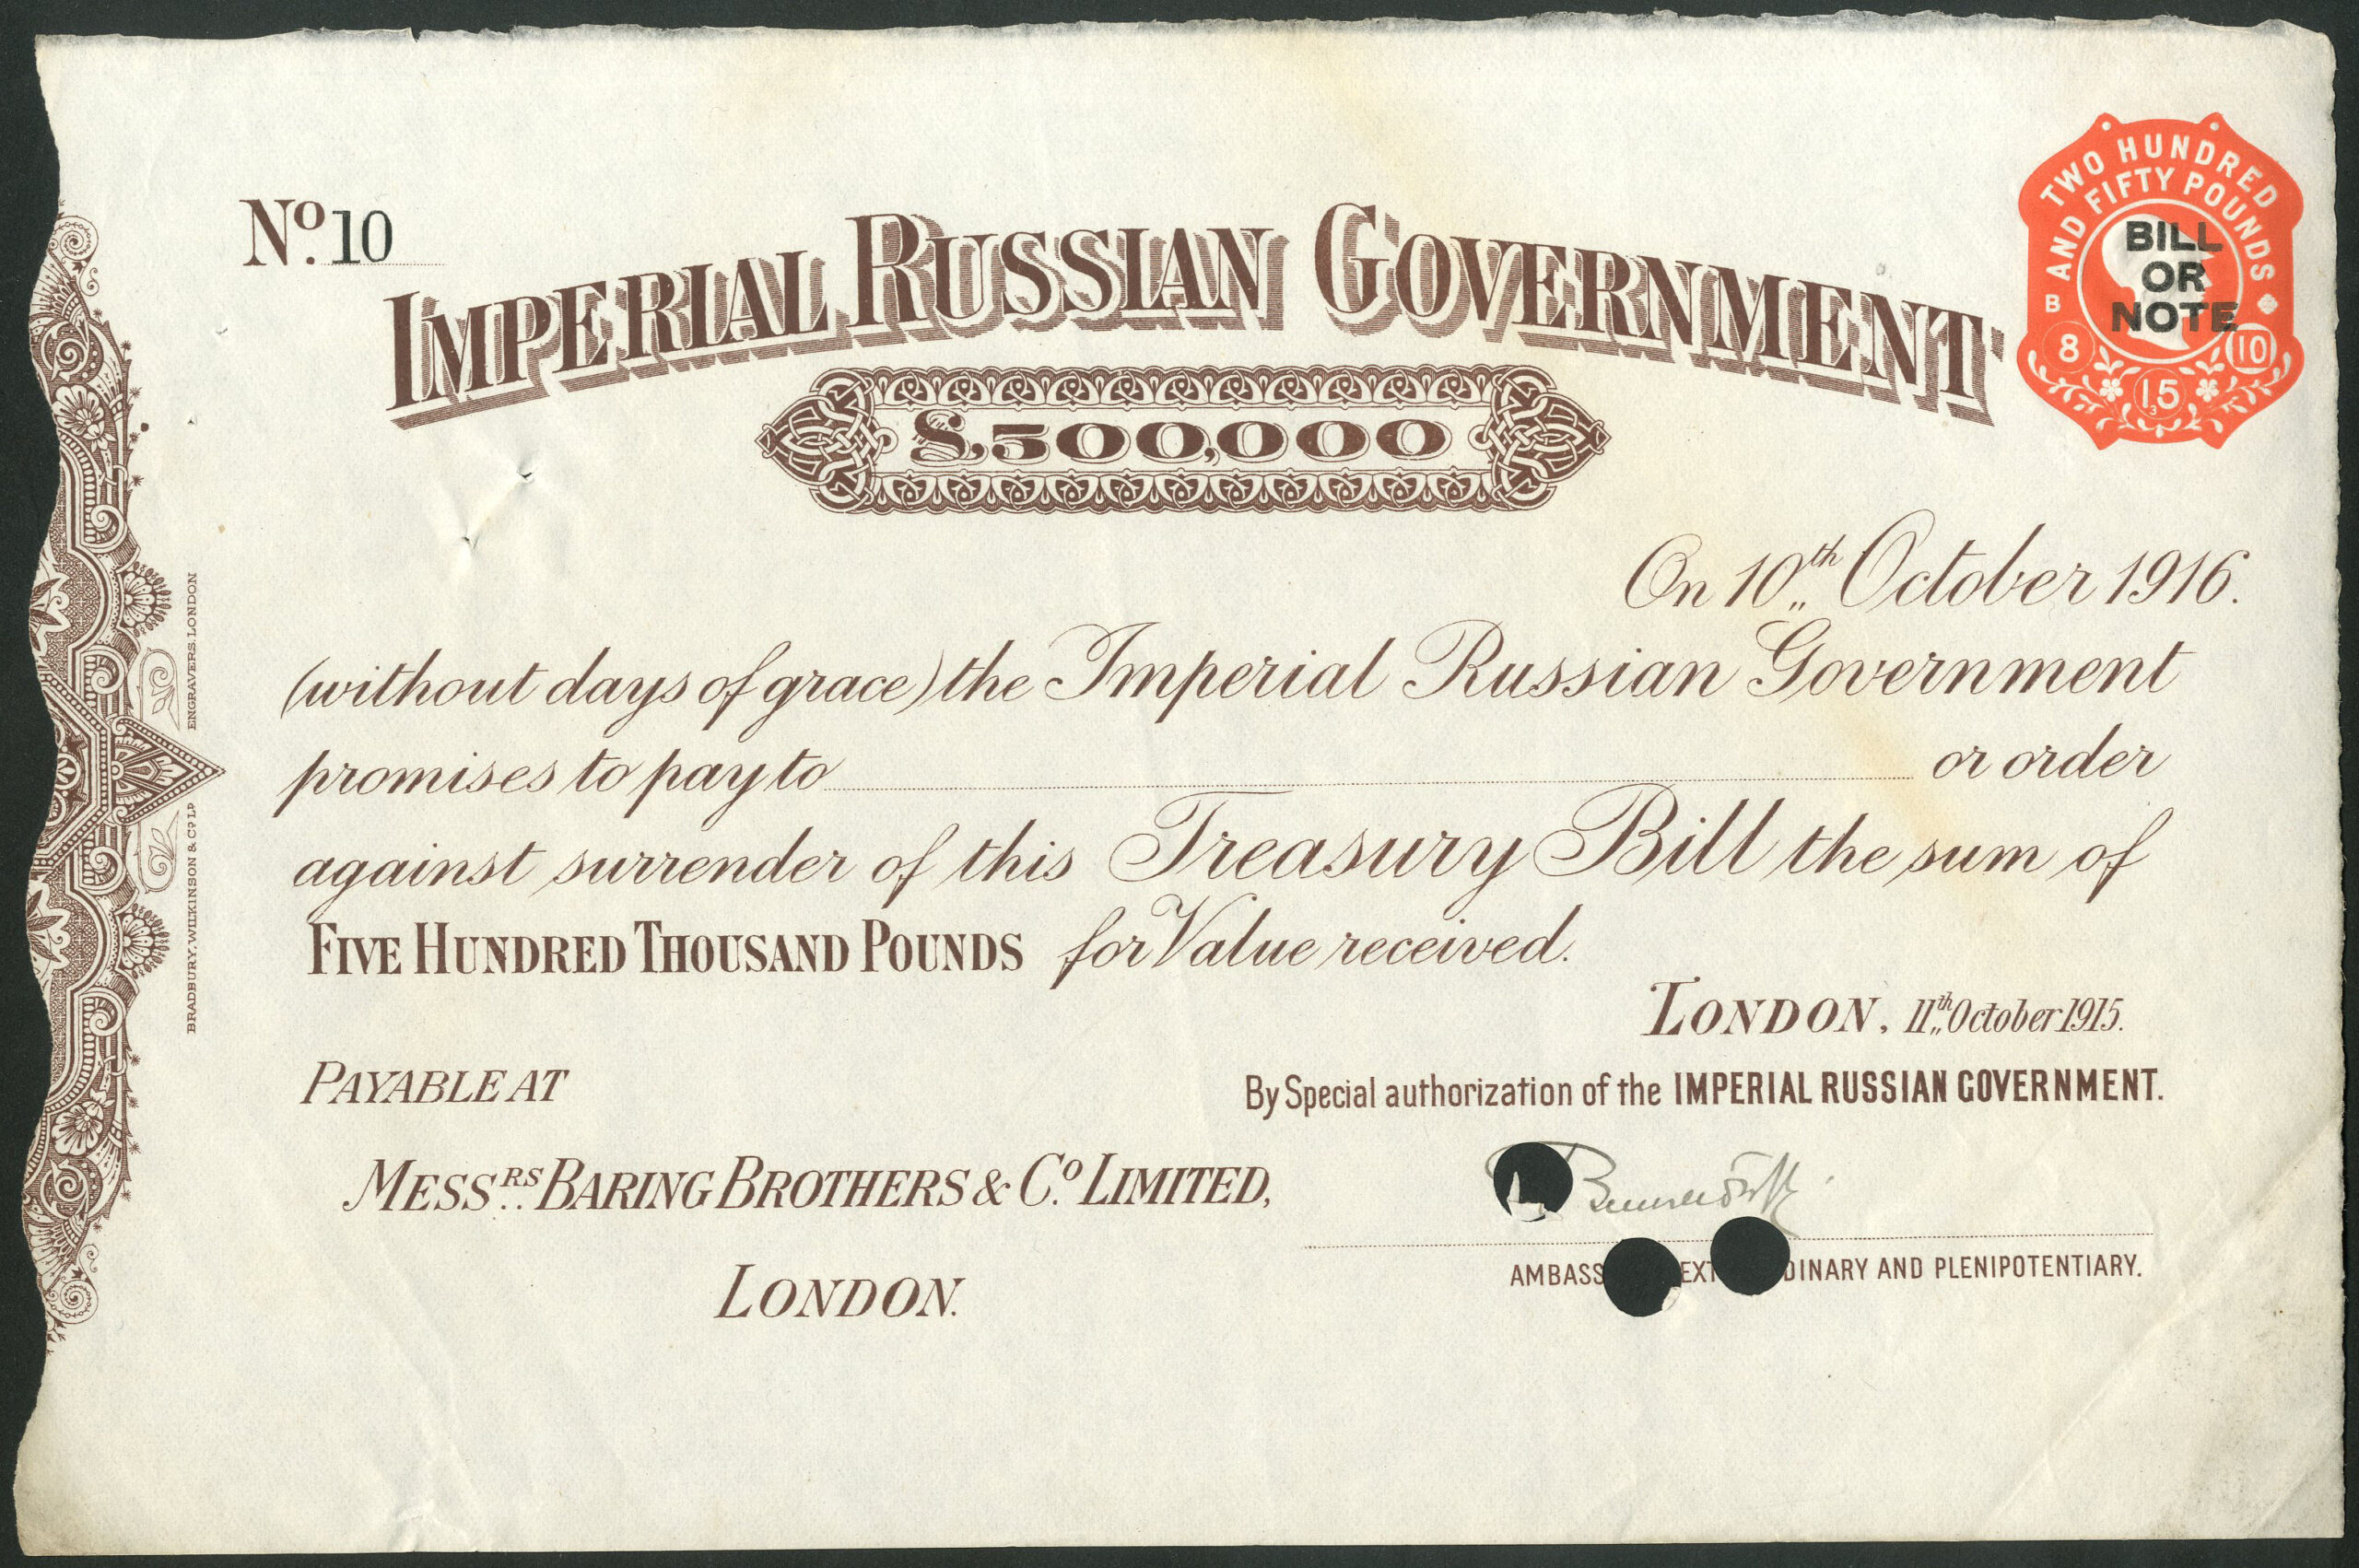 No. 10
IMPERIAL RUSSIAN GOVERNMENT
TWO HUNDRED
AND FIFTY POUNDS
BILL
OR
NOTE
B
8
10
15
3
£500,000
On 10th October 1916.
(without days of grace) the Imperial Russian Government
promises to pay to or order
against surrender of this Treasury Bill the sum of
FIVE HUNDRED THOUSAND POUNDS for Value received.
LONDON, 11th October 1915.
PAYABLE AT
By Special authorization of the IMPERIAL RUSSIAN GOVERNMENT.
MESSRS. BARING BROTHERS & Co. LIMITED,
AND PLENIPOTENTIARY.
LONDON.
BRADBURY, WILKINSON & Co. LD. ENGRAVERS, LONDON